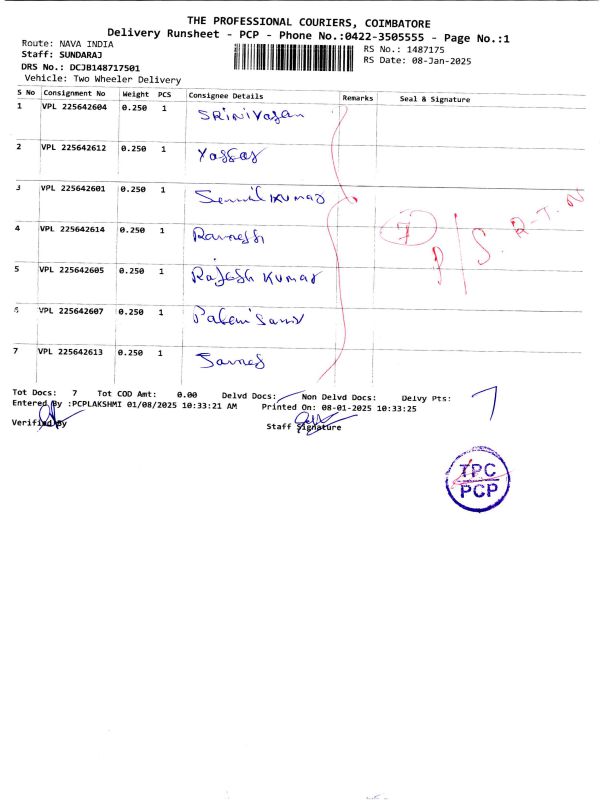 THE PROFESSIONAL COURIERS, COIMBATORE
Delivery Runsheet - PCP - Phone No.:0422-3505555 - Page No.:1
Route: NAVA INDIA
RS No.: 1487175
Staff: SUNDARAJ
RS Date: 08-Jan-2025
DRS No.: DCJB148717501
Vehicle: Two Wheeler Delivery
S No Consignment No Weight PCS Consignee Details Remarks Seal & Signature
1 VPL 225642604 0.250 1 SRINIVasan
2 VPL 225642612 0.250 1
3 VPL 225642601 0.250 1 Senthil KUmar
4 VPL 225642614 0.250 1 Ramesh
7 P/S. R-T-N
5 VPL 225642605 0.250 1 Rajesh KUmar
6 VPL 225642607 0.250 1
7 VPL 225642613 0.250 1
Tot Docs: 7 Tot COD Amt: 0.00 Delvd Docs: Non Delvd Docs: Delvy Pts: 7
Entered By :PCPLAKSHMI 01/08/2025 10:33:21 AM Printed On: 08-01-2025 10:33:25
Verified By
Staff Signature
TPC
PCP